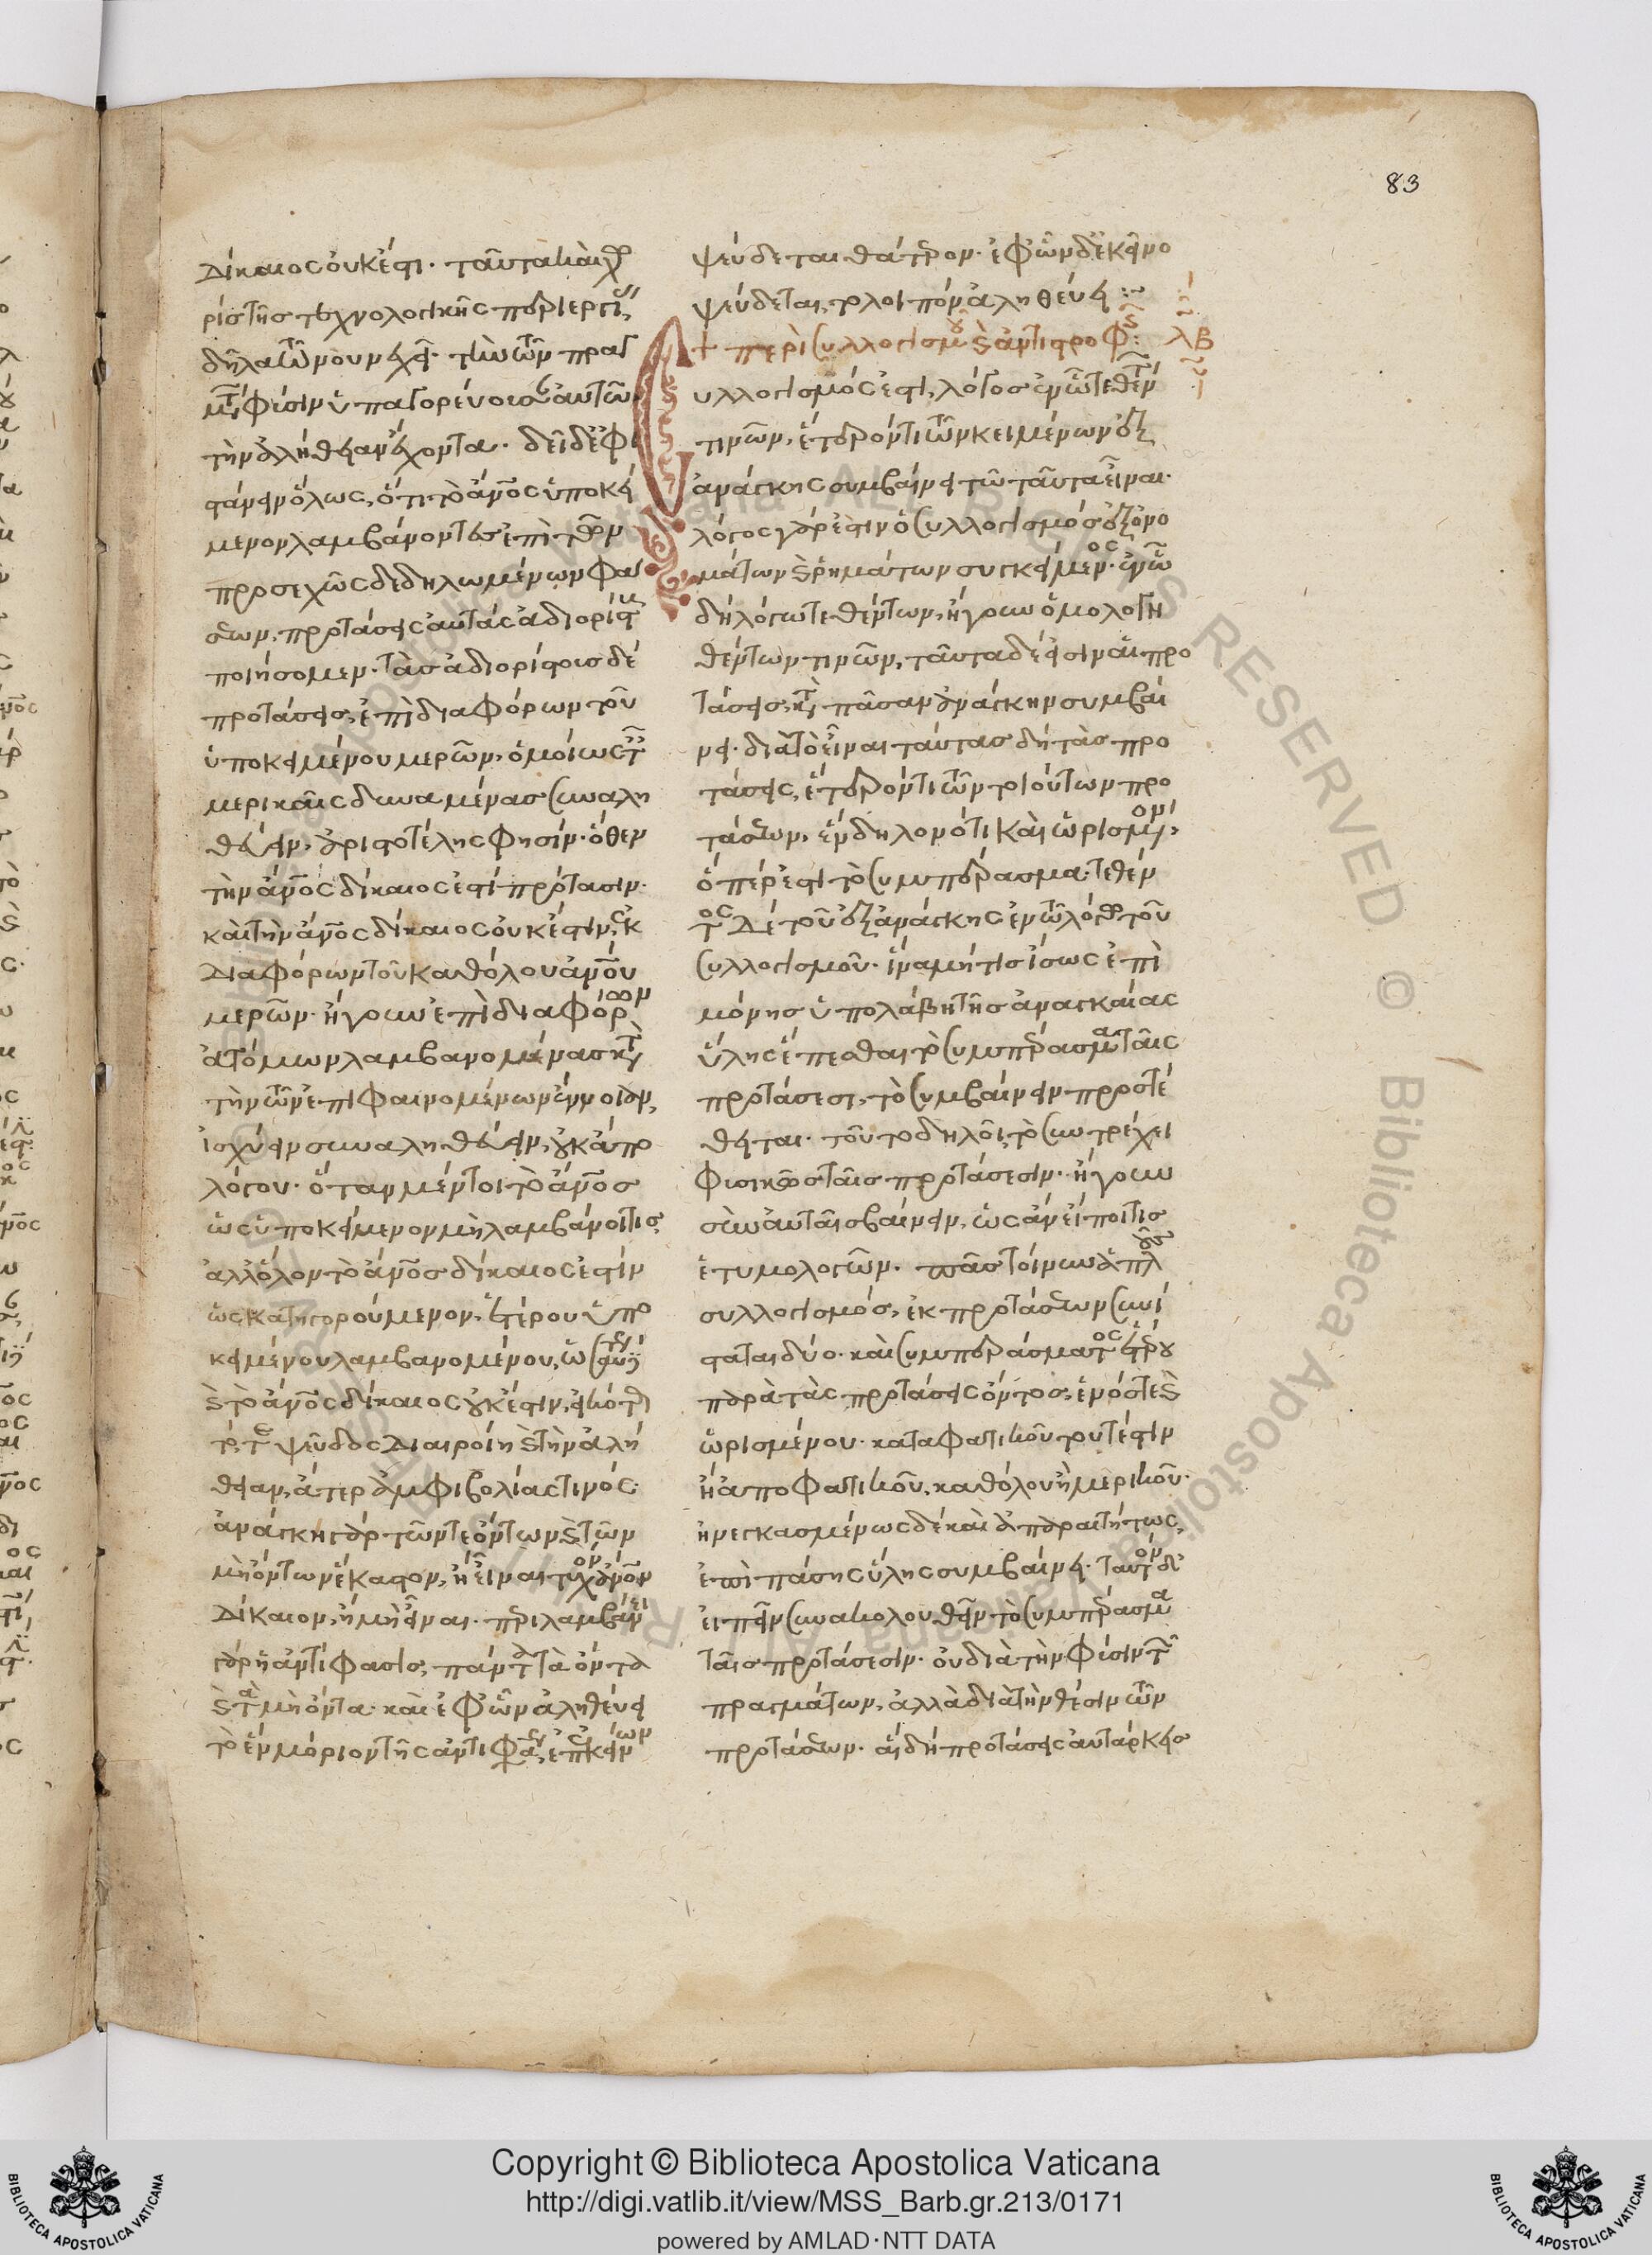 83
δίκαιος οὐκ ἔστι· ταῦτα καὶ χω
ρὶς τῆς τεχνολογικῆς περιεργίας
δῆλα τῷ νοῦν ἔχοντι· τὴν τῶν πραγ
μάτων φύσιν ὑπαγορεύουσαν αὐτῷ
τὴν ἀλήθειαν ἔχοντα· δεῖ δὲ ἐφι
στάνειν ὅλως, ὅτι τὸ ἄνος ὑποκεί
μενον λαμβάνοντες ἐπὶ τῶν
προσεχῶς δεδηλωμένων φά
σεων, προτάσεις αὐτὰς ἀδιορίστους
ποιήσομεν· τὰς ἀδιορίστους δὲ
προτάσεις, ἐπὶ διαφόρων τοῦ
ὑποκειμένου μερῶν, ὁμοίως ταῖς
μερικαῖς δυναμένας συναλη
θεύειν, ἀριστοτέλης φησίν· ὅθεν
τὴν ἄνος δίκαιος ἐστὶ πρότασιν·
καὶ τὴν ἄνος δίκαιος οὐκ ἔστιν, ἐκ
διαφόρων τοῦ καθόλου ἀνου
μερῶν· ἤγουν ἐπὶ διαφόρων
ἀτόμων λαμβανομένας κατὰ
τὴν τῶν ἐπιφαινομένων ἔννοιαν,
ἰσχύειν συναληθεύειν, οὐκ ἄπο
λόγου· ὅταν μέντοι τὸ ἄνος
ὡς ὑποκείμενον μὴ λαμβάνοιτις,
ἀλλ' ὅλον τὸ ἄνος δίκαιος ἐστὶν
ὡς κατηγορούμενον, ἑτέρου ὑπο
κειμένου λαμβανομένου,
καὶ τὸ ἄνος δίκαιος οὐκ ἔστιν, εἰκότως
ψεῦδος διαιροίη καὶ τὴν ἀλή
θειαν, ἄτερ ἀμφιβολίας τινός·
ἀνάγκη γὰρ τῶν τε ὄντων καὶ τῶν
μὴ ὄντων ἕκαστον, ἢ εἶναι τυχὸν ἄνον
δίκαιον, ἢ μὴ εἶναι· περιλαμβάνει
γὰρ ἡ ἀντίφασις, πάντα τὰ ὄντα
καὶ τὰ μὴ ὄντα· καὶ ἐφ' ὧν ἀληθεύει
τὸ ἓν μόριον τῆς ἀντιφάσεως, ἐπ' ἐκείνων
ψεύδεται θάτερον· ἐφ' ὧν δ' ἐκεῖνο
ψεύδεται, τὸ λοιπὸν ἀληθεύει :~
+ περὶ συλλογισμοῦ καὶ ἀντιστροφῆς: λβ
υλλογισμός ἐστι, λόγος ἐν ᾧ τεθέντων
τινῶν, ἕτερόν τι τῶν κειμένων ἐξ
ἀνάγκης συμβαίνει τῷ ταῦτα εἶναι·
λόγος γάρ ἐστιν ὁ συλλογισμὸς ἐξ ὀνο
μάτων καὶ ῥημάτων συγκείμενος· ἐν ᾧ
δὴ λόγω τεθέντων, ἤγουν ὁμολογη
θέντων τινῶν, ταῦτα δέ εἰσιν αἱ προ
τάσεις, κατὰ πᾶσαν ἀνάγκην συμβαί
νει· διὰ τὸ εἶναι ταύτας δὴ τὰς προ
τάσεις, ἕτερόν τι τῶν τοιούτων προ
τάσεων, ἓν δηλονότι καὶ ὡρισμένον,
ὅπέρ ἐστι τὸ συμπέρασμα· τεθέν
τος δὲ τοῦ ἐξ ἀνάγκης ἐν τῷ λόγω τοῦ
συλλογισμοῦ· ἵνα μήτις ἴσως ἐπὶ
μόνης ὑπολάβη τῆς ἀναγκαίας
ὕλης ἕπεσθαι τὸ συμπέρασμα ταῖς
προτάσεσι, τὸ συμβαίνειν προστέ
θειται· τοῦτο δηλοῖ, τὸ συντρέχει
φυσικῶς ταῖς προτάσεσιν· ἤγουν
σὺν αὐταῖς βαίνειν, ὡς ἂν εἴποι τις
ἐτυμολογῶν· πᾶς τοίνυν ἁπλοῦς
συλλογισμός, ἐκ προτάσεων συνί
σταται δύο· καὶ συμπεράσματος ἑτέρου
παρὰ τὰς προτάσεις ὄντος, ἑνός τε καὶ
ὡρισμένου· καταφατικοῦ τουτέστιν
ἢ ἀποφατικοῦ, καθόλου ἢ μερικοῦ·
ἠνεγκασμένως δὲ καὶ ἀπαραιτήτως,
ἐπὶ πάσης ὕλης συμβαίνει· ταυτὸν δ'
εἰπεῖν συνακολουθεῖν τὸ συμπέρασμα
ταῖς προτάσεσιν· οὐ διὰ τὴν φύσιν τῶν
πραγμάτων, ἀλλὰ διὰ τὴν θέσιν τῶν
προτάσεων· αἱ δὴ προτάσεις αὐτάρκεις
Copyright © Biblioteca Apostolica Vaticana
http://digi.vatlib.it/view/MSS_Barb.gr.213/0171
powered by AMLAD·NTT DATA